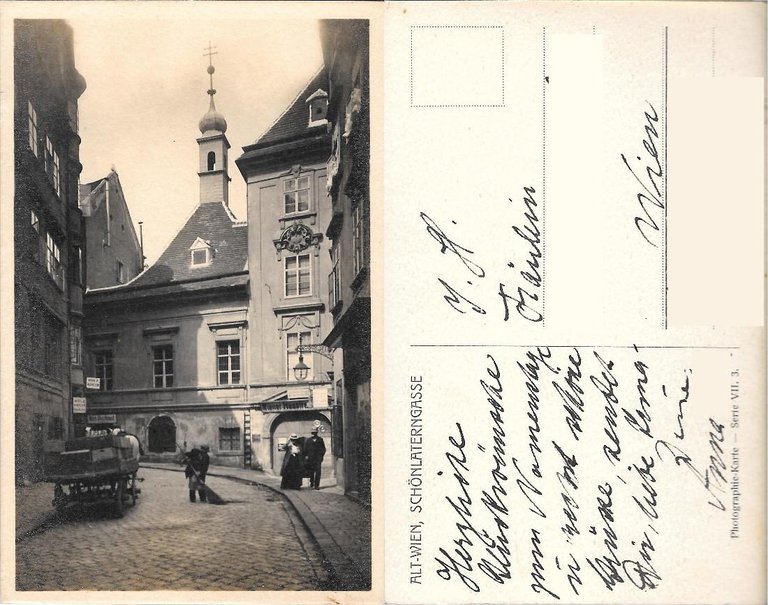 ALT-WIEN, SCHÖNLATERNGASSE
Herzliche
Glückwünsche
zum Namenstag
u. recht schöne
Grüße, sendet
Dir, liebe
Deine
Anna
Photographie-Karte — Serie VII. 3.
Fräulein
Wien